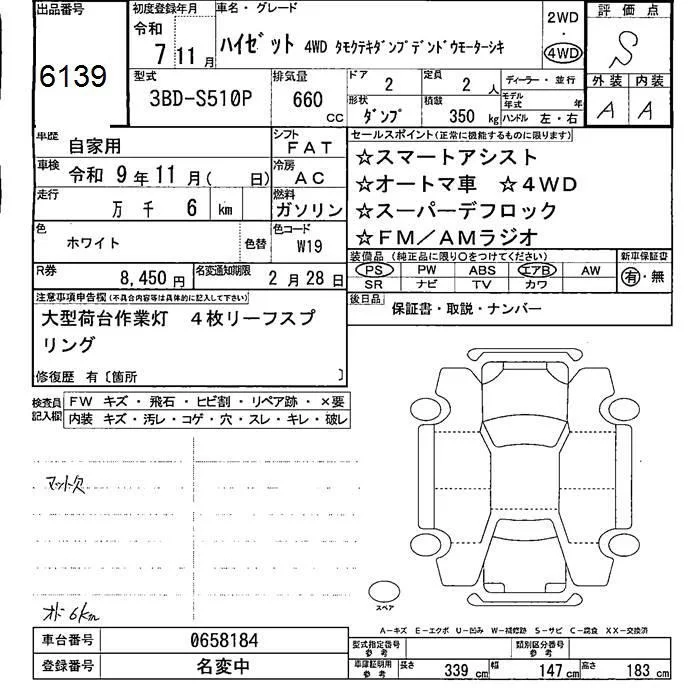 出品番号
6139
初度登録年月
令和
7 11月
車名・グレード
ハイゼット 4WD タモクテキダンプデンドウモーターシキ
2WD
・
4WD
評価点
S
外装 内装
A A
型式
3BD-S510P
排気量
660
CC
ドア
2
定員
2 人
形状
ダンプ
積載
350 kg
ディーラー・並行
モデル年式 年
ハンドル 左・右
車歴
自家用
シフト
FAT
車検
令和 9年 11月( 日)
冷房
AC
走行
万 千 6 km
燃料
ガソリン
色
ホワイト
色替
色コード
W19
R券
8,450円
名変通知期限
2月28日
セールスポイント(正常に機能するものに限ります)
☆スマートアシスト
☆オートマ車 ☆4WD
☆スーパーデフロック
☆FM/AMラジオ
装備品(純正品に限り○をつけてください)
PS PW ABS エアB AW
SR ナビ TV カワ
新車保証書
有・無
後日品
保証書・取説・ナンバー
注意事項申告欄(不具合内容等は具体的に記入して下さい)
大型荷台作業灯 4枚リーフスプ
リング
修復歴 有〔箇所 〕
検査員
記入欄
FW キズ・飛石・ヒビ割・リペア跡・×要
内装 キズ・汚レ・コゲ・穴・スレ・キレ・破レ
マット欠
オド 6km
スペア
A-キズ E-エクボ U-凹み W-補修跡 S-サビ C-腐食 XX-交換済
車台番号
0658184
登録番号
名変中
型式指定番号
参考
類別区分番号
参考
車庫証明用
参考
長さ 339cm 幅 147cm 高さ 183cm